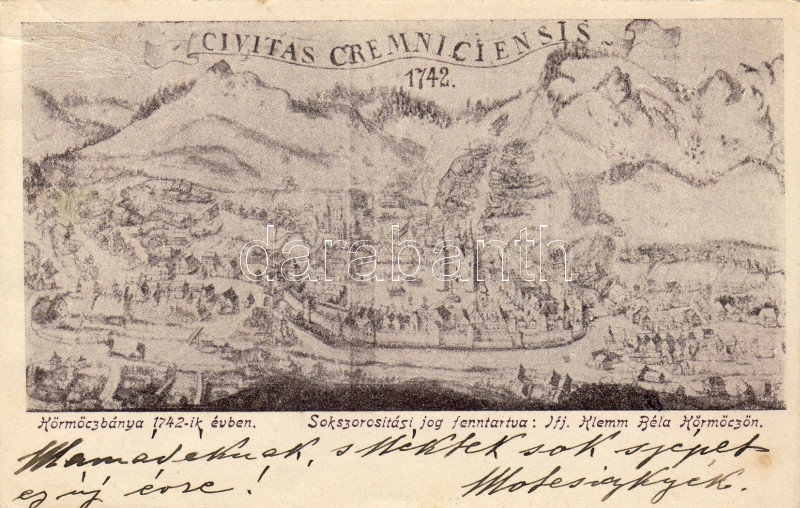 CIVITAS CREMNICIENSIS
1742.
darabanth
Körmöczbánya 1742-ik évben. Sokszorositási jog fenntartva: Ifj. Klemm Béla Körmöczön.
Mamádéknak, s Néktek sok szépet
ez új évre!